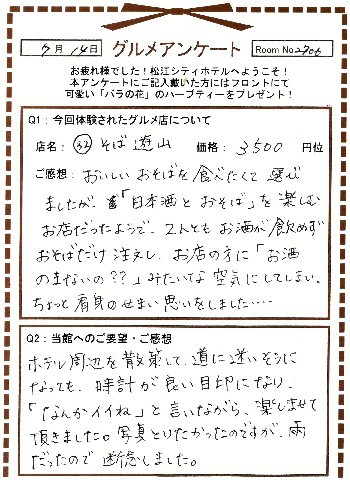 9月14日 グルメアンケート Room No.2906
お疲れ様でした!松江シティホテルへようこそ!
本アンケートにご記入戴いた方にはフロントにて
可愛い「バラの花」のハーブティーをプレゼント!
Q1:今回体験されたグルメ店について
店名: ㉜ そば 遊山 価格: 3500 円位
ご感想: おいしいおそばを食べたくて選び
ましたが、「日本酒とおそば」を楽しむ
お店だったようで、2人ともお酒が飲めず
おそばだけ注文し、お店の方に「お酒
のまないの??」みたいな空気にしてしまい、
ちょっと肩身のせまい思いをしました・・・・
Q2:当館へのご要望・ご感想
ホテル周辺を散策して、道に迷いそうに
なっても、時計が良い目印になり、
「なんかイイね」と言いながら、楽しませて
頂きました。写真とりたかったのですが、雨
だったので断念しました。